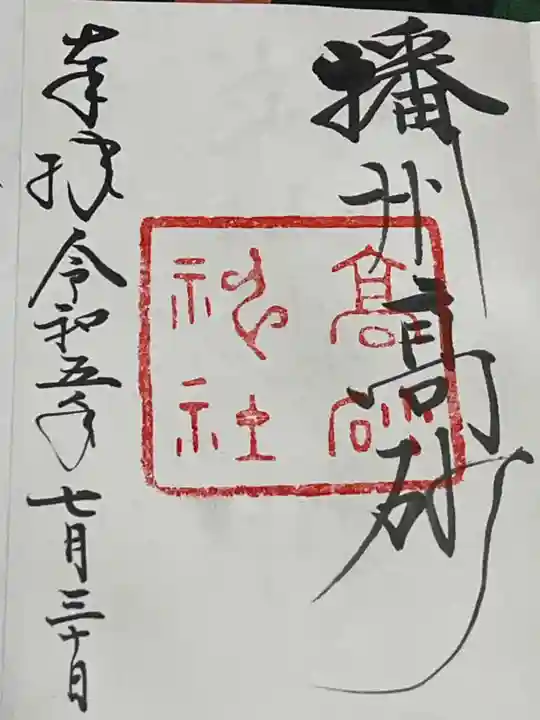 播州高砂
高砂
神社
奉拝令和五年七月三十日